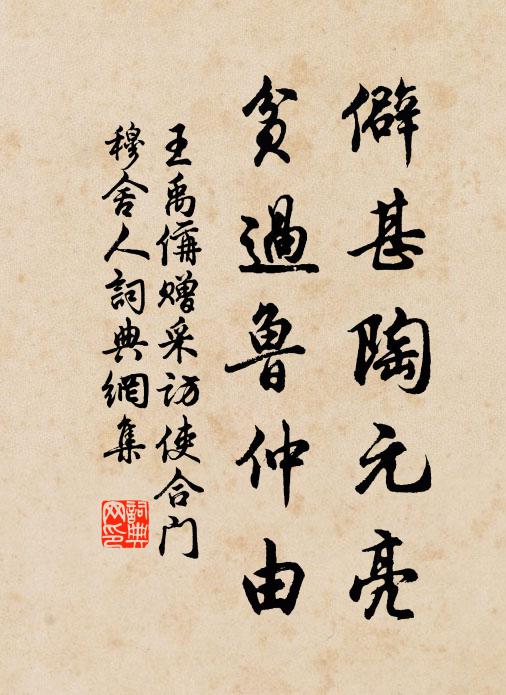 僻甚陶元亮
貧過魯仲由
王禹偁贈采访使合门
穆舍人詞典網集
詞典
网印